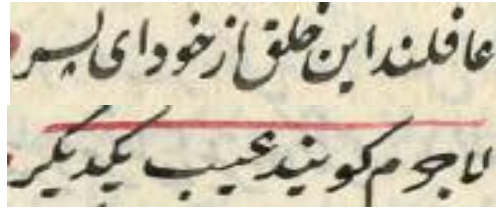 غافلند این خلق از خود ای پسر
لاجرم کویند عیب یکدیکر